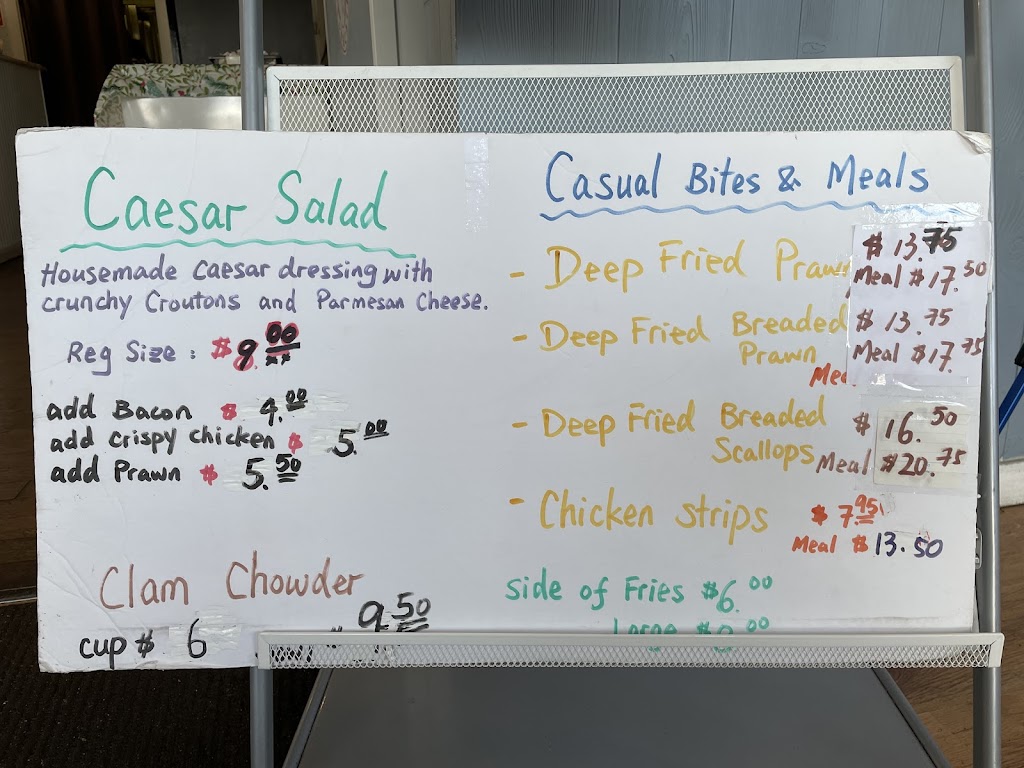 Caesar Salad
Housemade Caesar dressing with
crunchy Croutons and Parmesan Cheese.
Reg Size : $9.00
add Bacon $ 4.00
add crispy chicken $ 5.00
add Prawn $ 5.50
Clam Chowder
cup $ 6
9.50
Casual Bites & Meals
- Deep Fried Prawn $13.75
Meal $17.50
- Deep Fried Breaded $13.75
Prawn Meal $17.75
- Deep Fried Breaded $16.50
Scallops Meal $20.75
- Chicken strips $7.95
Meal $13.50
Side of Fries $6.00
Large